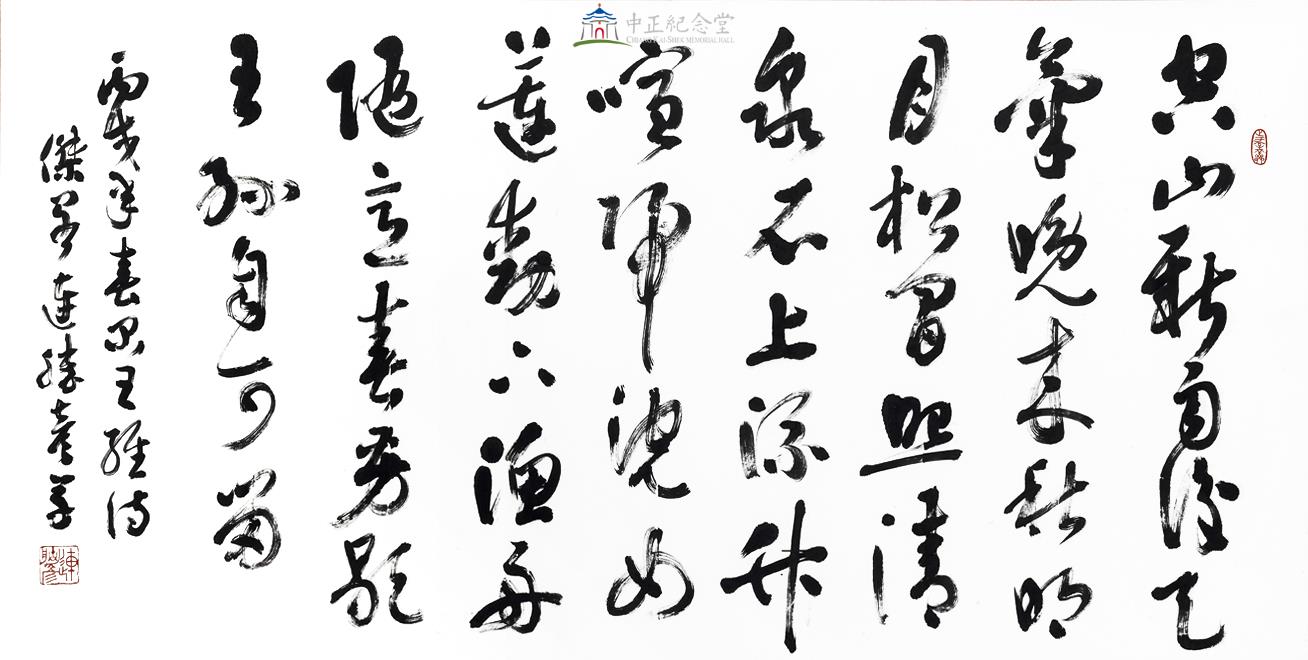 中正紀念堂
CHIANG KAI-SHEK MEMORIAL HALL
空山新雨後天
氣晚來秋明
月松間照清
泉石上流竹
喧歸浣女
蓮動下漁舟
隨意春芳歇
王孫自可留
丙戌年春王維詩
傑連勝彥草